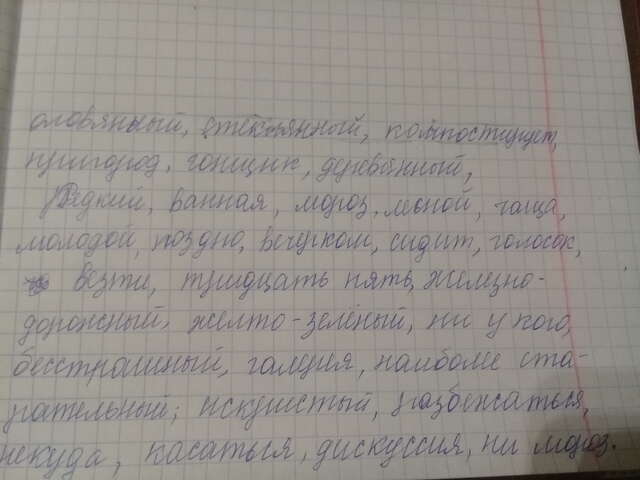 оловянный, стеклянный, компостирует,
пригород, гонщик, деревянный,
Редкий, ванная, мороз, мьной, чаща,
молодой, поздно, вечерком, сидит, голосок,
везти, тридцать пять, железно-
дорожный, желто-зелёный, ни у кого,
бесстрашный, галерея, наиболе ста-
рательный; искристый, разбежаться,
некуда, касаться, дискуссия, ни мороз.